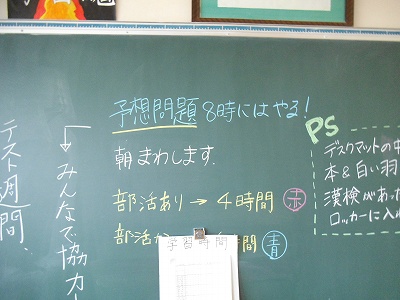 予想問題 8時にはやる!
朝まわします.
部活あり→4時間 赤
部活 時間 青
学習時間
テスト週間、
←みんなで協力
PS
デスクマットの中
本&白い羽
漢検があった
ロッカーに入